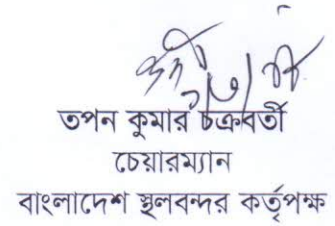 তপন কুমার চক্রবর্তী
চেয়ারম্যান
বাংলাদেশ স্থলবন্দর কর্তৃপক্ষ